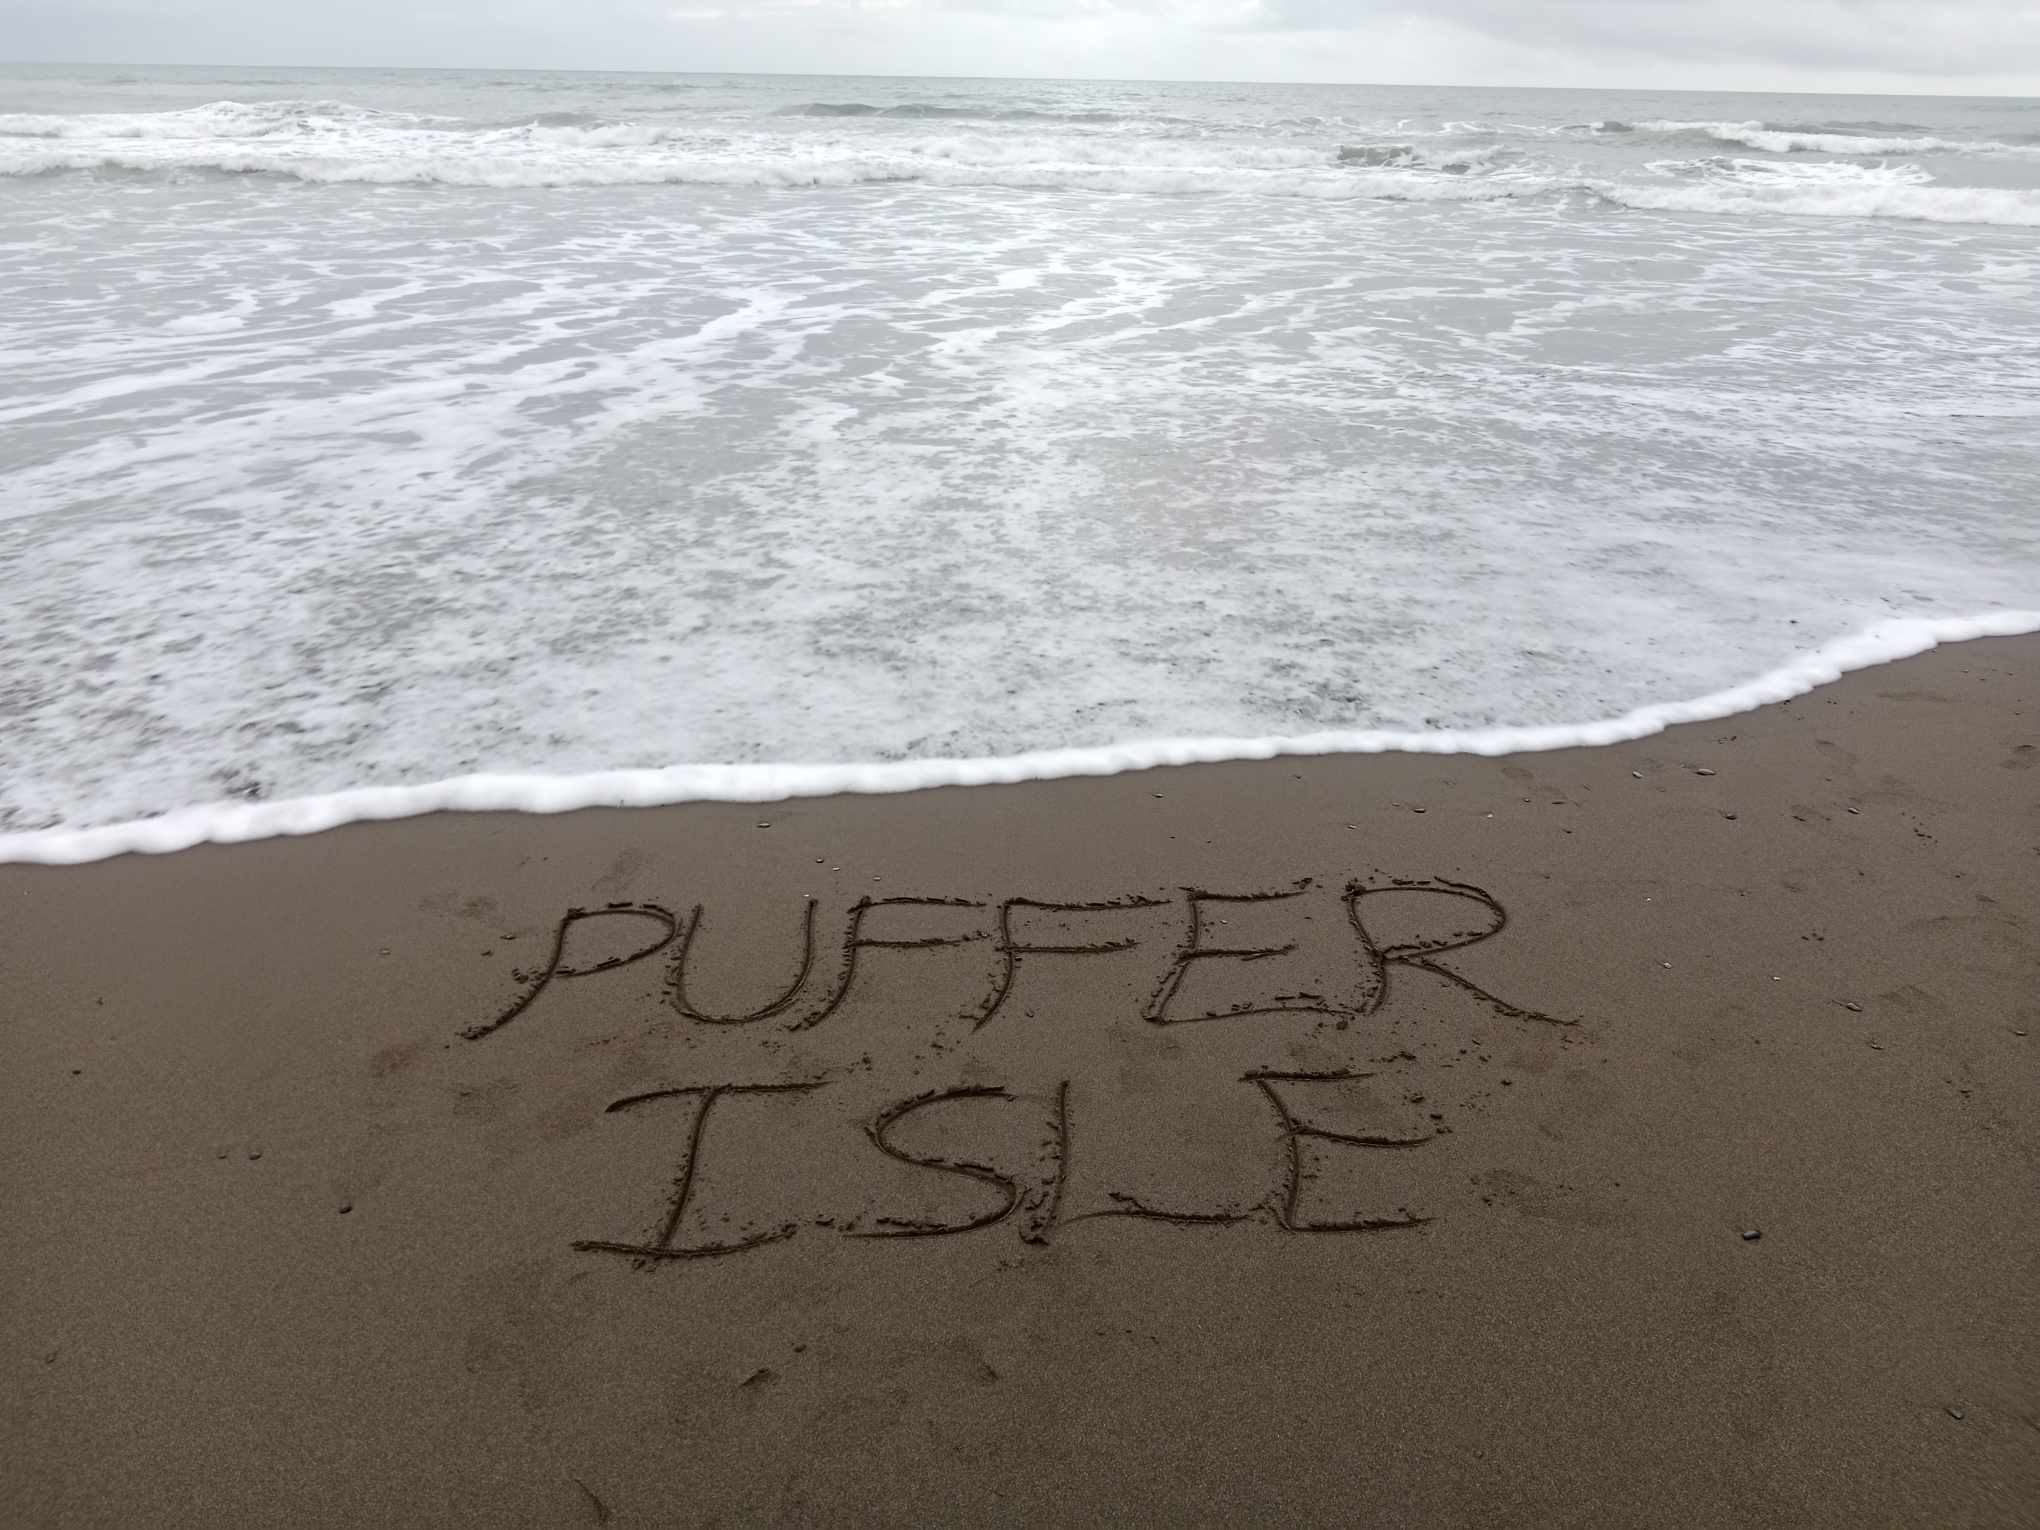 PUFFER
ISLE